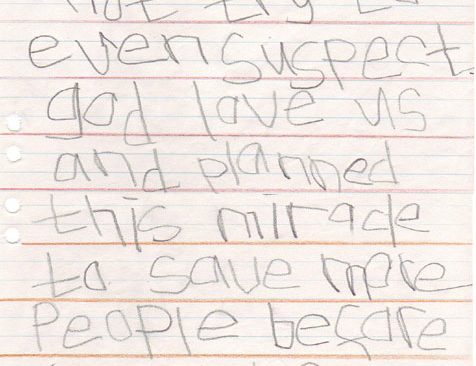 not try to
even suspect.
god love us
and planned
this miracle
to save more
people before